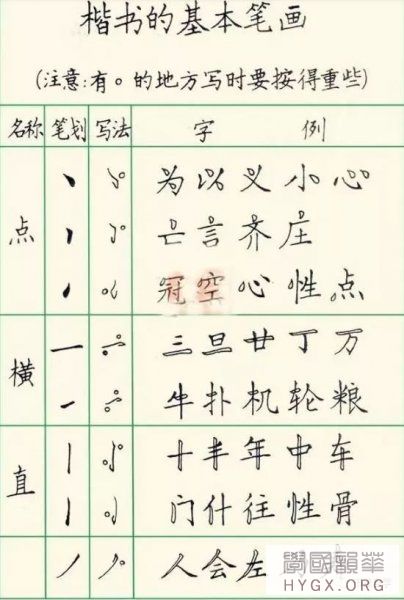 楷书的基本笔画
(注意:有。的地方写时要按得重些)
名称 笔划 写法 字 例
点
为以义小心
亡言齐庄
冠空心性点
横
三旦廿丁万
牛扑机轮粮
直
十半年中车
门什往性骨
人会左
學國韻華
HYGX.ORG